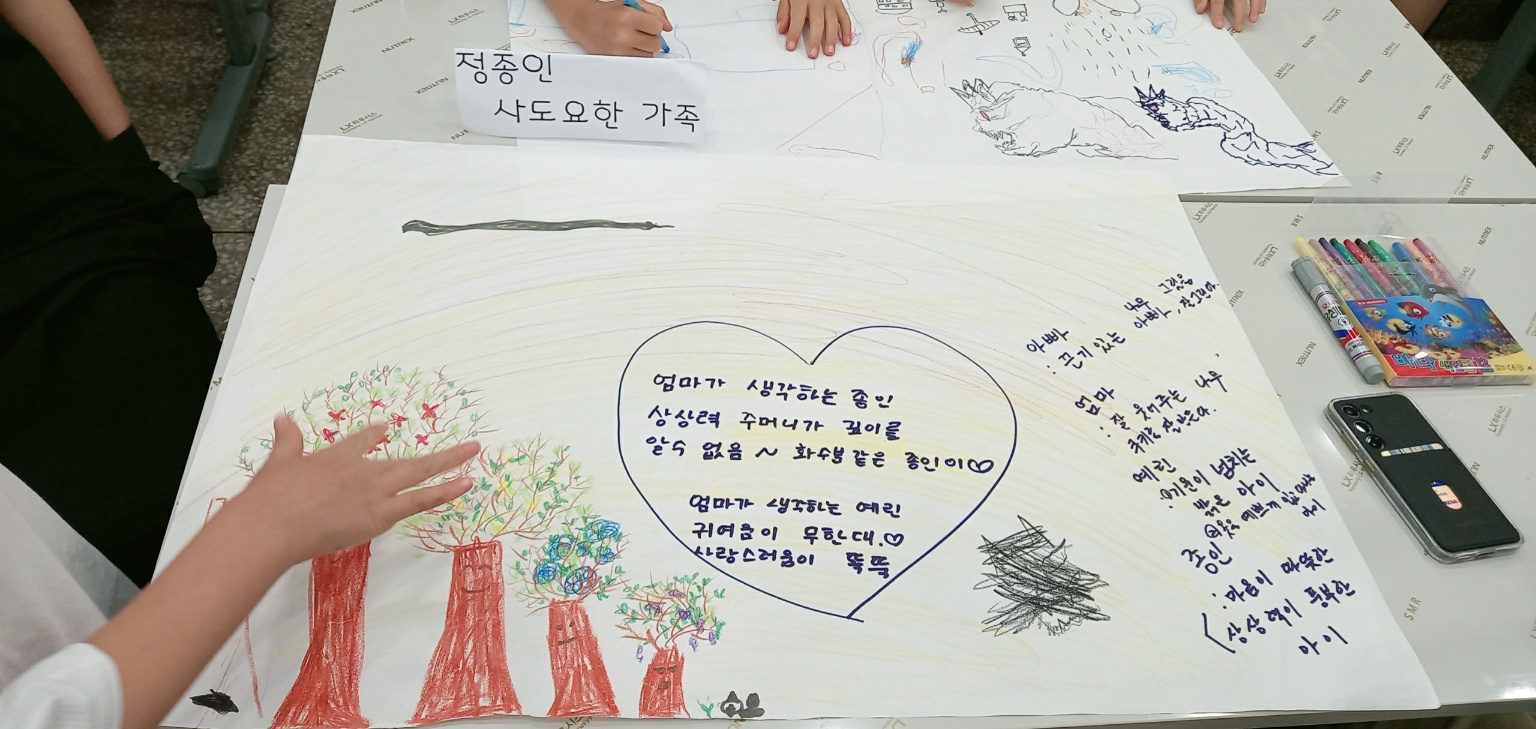 정종인
사도요한 가족
엄마가 생각하는 종인
상상력 주머니가 깊이를
알수 없음 ~ 화수분 같은 종인이♡
엄마가 생각하는 예린
귀여움이 무한대.♡
사랑스러움이 뚝뚝
아빠
나무 그렸음
: 끈기 있는 아빠, 잘 그린다.
엄마
: 잘 웃어주는 나무,
쿠키를 잘
예린
넘치는
밝은 아이
예쁘게
아이
종인
: 마음이 따뜻한
상상력이 풍부한
아이
바다
LX하우시스
NUTREX
SMR